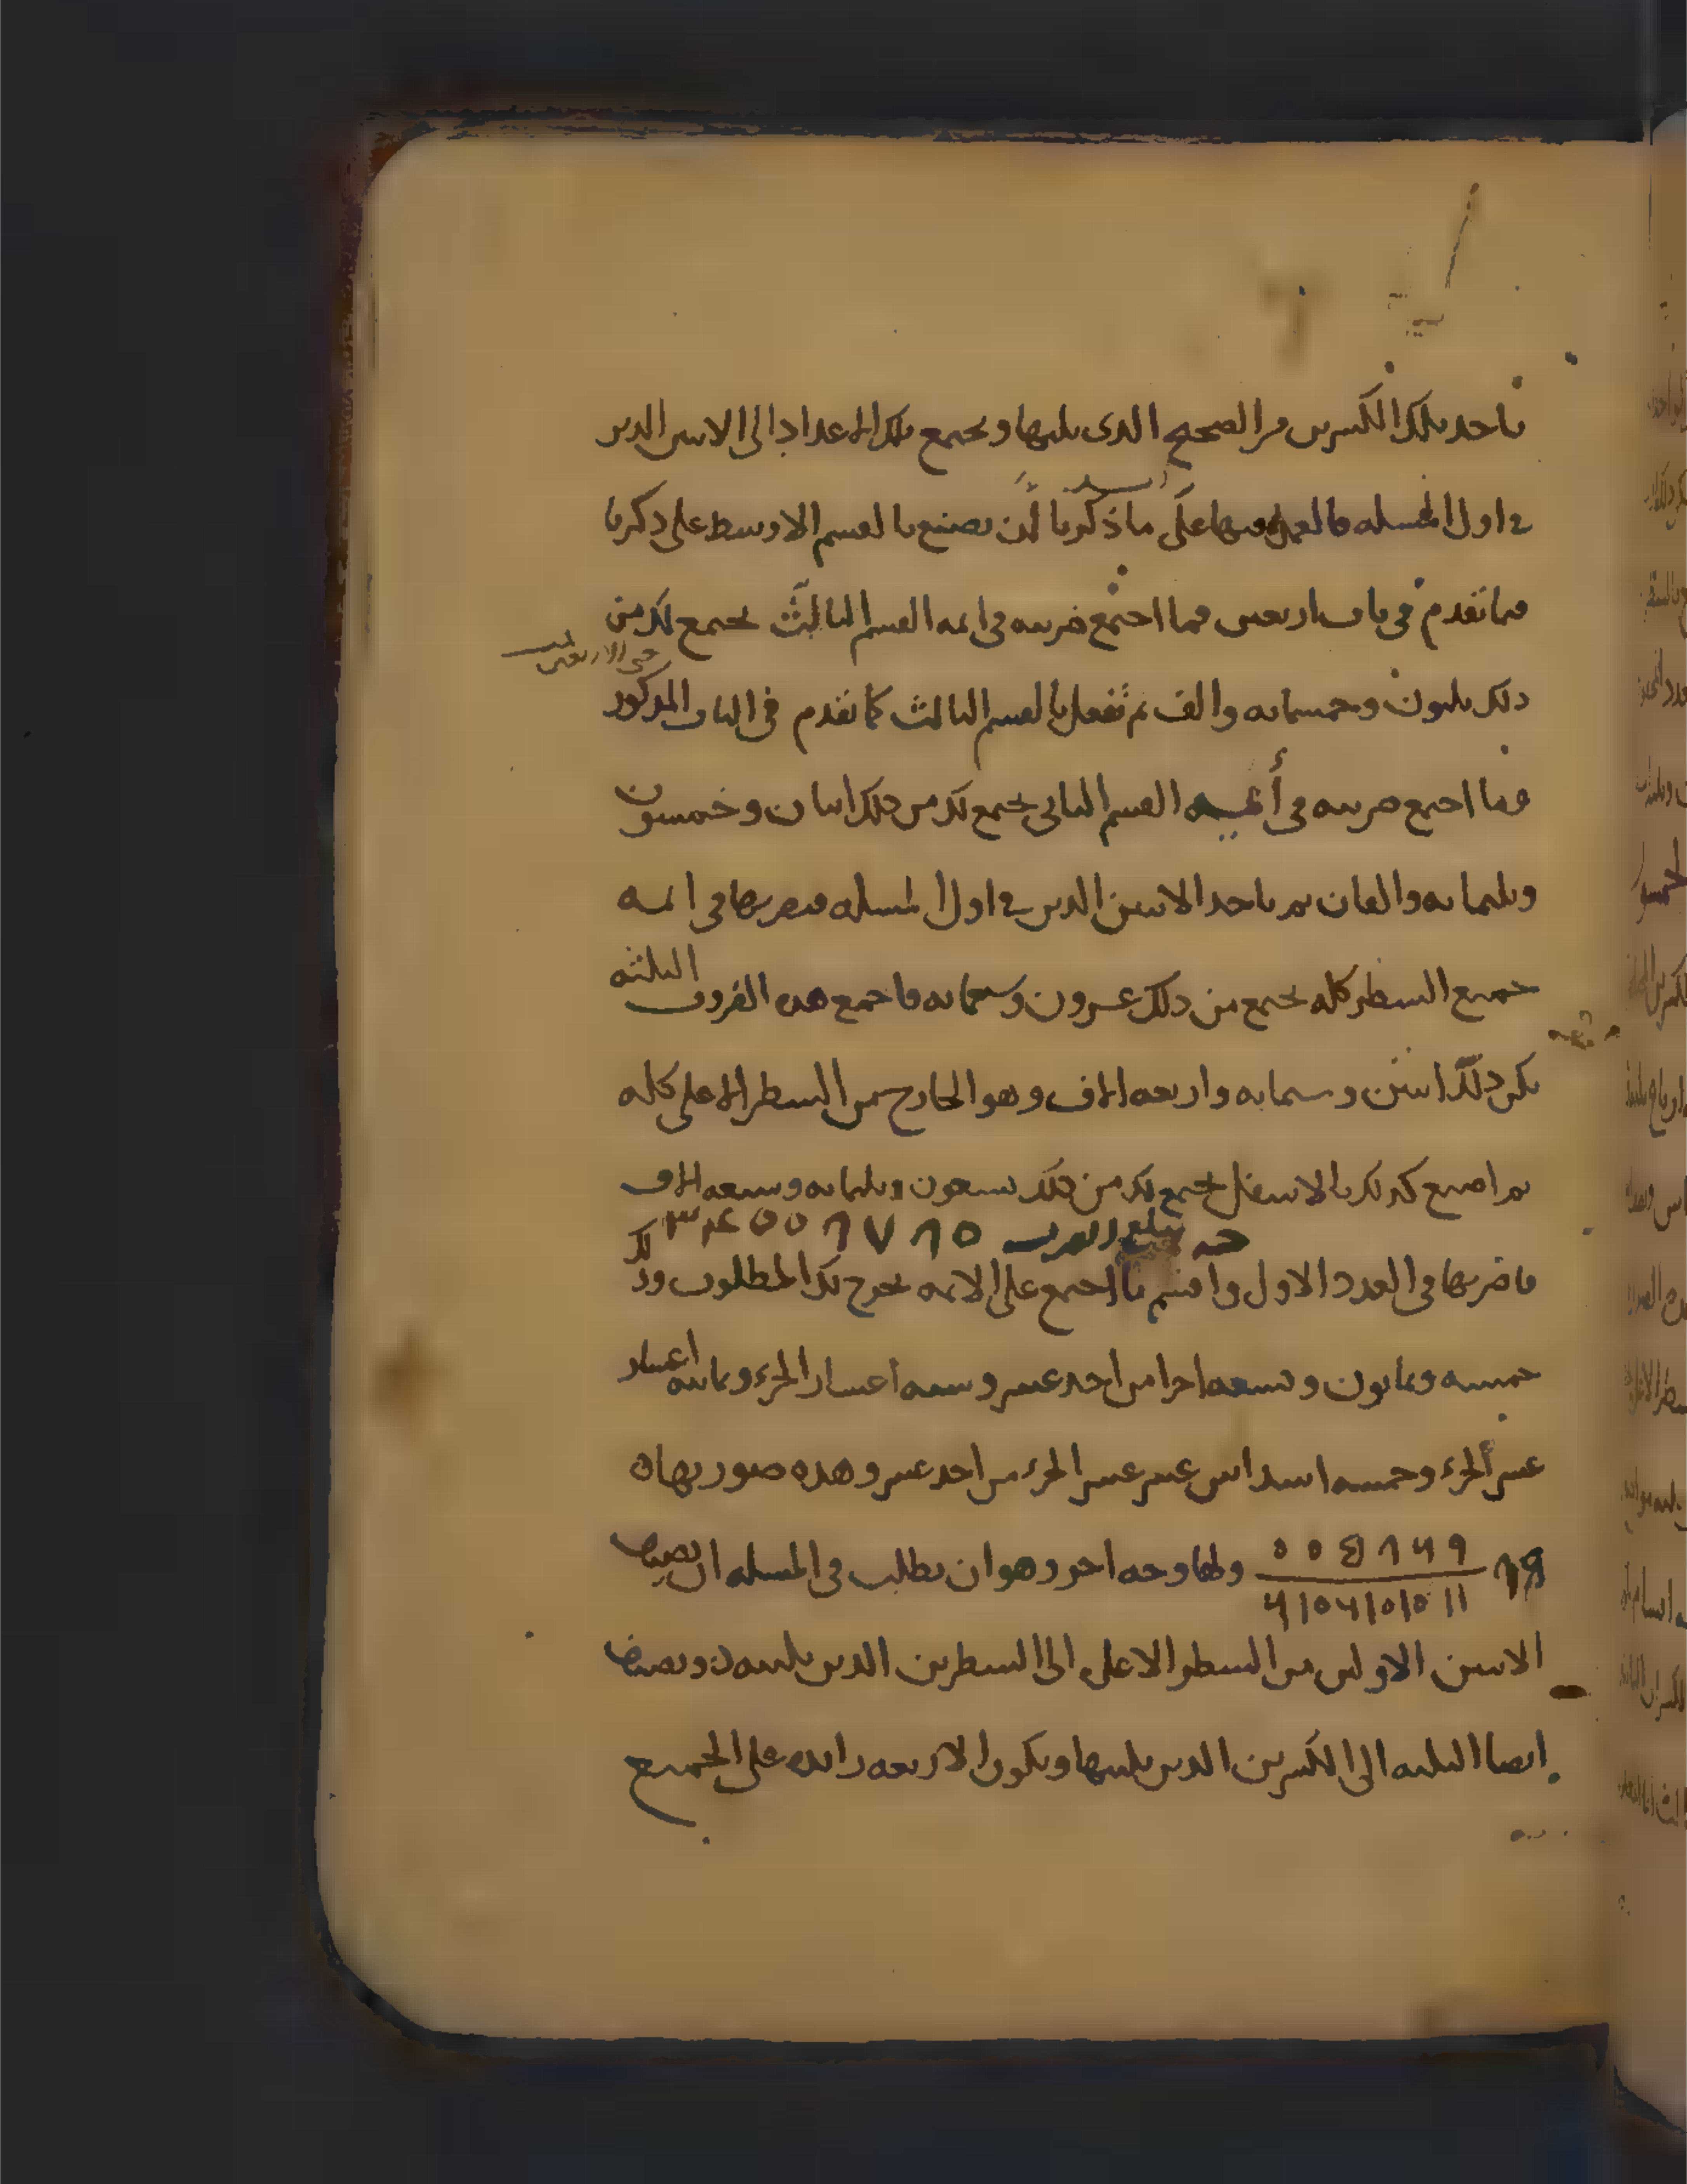 ناخد تلك الكسرين من الصحيح الدى يليها وتجمع تلك الاعداد الى الاثنين الدين
في اول المسله فالعمل فيها على ما ذكرنا لك ان تصنع بالقسم الاوسط على ذكرنا
فما تقدم في باب اربعين فما اجتمع ضربته في ايمه القسم الثالث يجتمع لك من
في الاربعين
دلك ثلثون وخمسمايه والف ثم تفعل بالقسم الثالث كما تقدم في الباب المذكور
فما اجتمع ضربته في أيمه القسم الثاني يجتمع لك من ذلك اثنان وخمسون
وثلثمايه والفان ثم ناخد الاثنين الدين في اول المسله فتضربها في ايمه
جميع السطر كله يجتمع من دلك عشرون وسبعمايه فاجمع هده الضروب الثلثه
يكن ذلك اثنين وستمايه واربعه الاف وهو الخارج من السطر الاعلى كله
ثم اصنع كدلك بالاسفل يجتمع لك من ذلك تسعون وثلثمايه وسبعه الاف
مبلغ الضرب
فاضربها في العدد الاول واقسم ما اجتمع على الايمه يخرج لك المطلوب ودلك
خمسه وثمانون وتسعه اجزا من احد عشر وسته اعشار الجزء وثمانيه اعشار
عشر الجزء وخمسه اسداس عشر عشر الجزء من احد عشر وهذه صورتها ه
ولها وجه اخر وهو ان يطلب في المسله ان تضيف
الاثنين الاولين من السطر الاعلى الى السطرين الدين يليه ن وتضيف
ايضا الثلثه الى الكسرين الدين يليها ويكون الاربعه زايده على الجميع